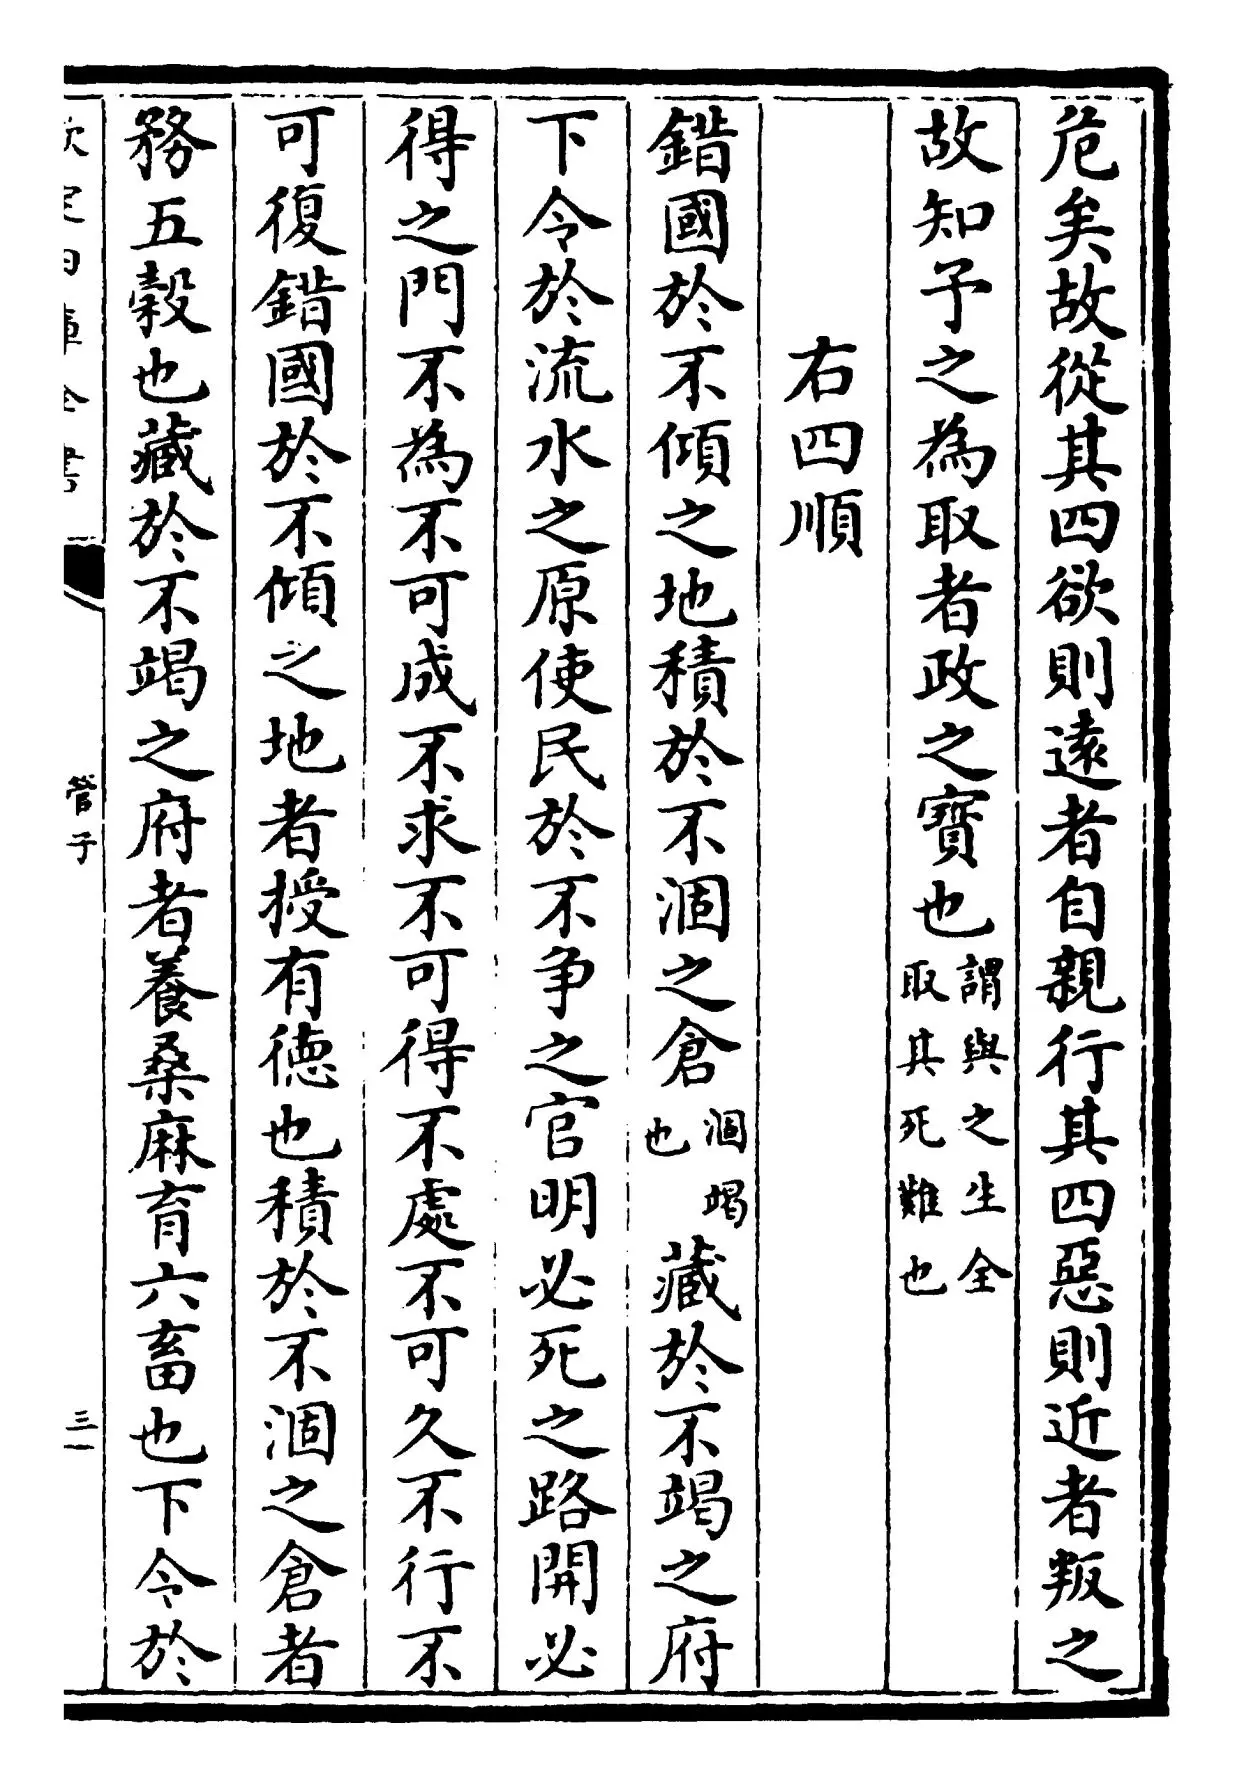 危矣故從其四欲則遠者自親行其四惡則近者叛之
故知予之為取者政之寶也謂與之生全取其死難也
右四順
錯國於不傾之地積於不涸之倉涸竭也藏於不竭之府
下令於流水之原使民於不争之官明必死之路開必
得之門不為不可成不求不可得不處不可久不行不
可復錯國於不傾之地者授有德也積於不涸之倉者
務五穀也藏於不竭之府者養桑麻育六畜也下令於
欽定四庫全書
管子
三